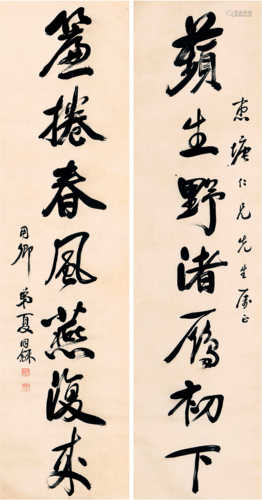 惠塘仁兄先生屬正
蘋生野渚鴈初下
簾捲春風燕復來
用卿弟夏同龢